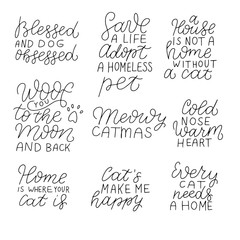 Blessed
AND DOG
obsessed
Save
A LIFE
Adopt
A HOMELESS
pet
a
House
IS NOT A
home
WITHOUT
a cat
Woof
YOU
to the
Moon
AND BACK
Meowy
CATMAS
Cold
NOSE
warm
HEART
Home
IS WHERE YOUR
Cat is
Cat's
MAKE ME
happy
Every
CAT
needs
A HOME